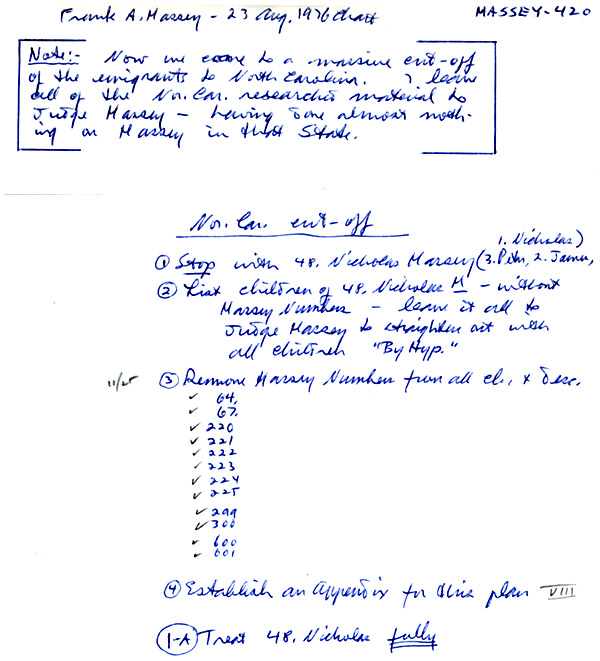 Frank A. Massey - 23 Aug. 1976 chart
MASSEY-420
Note:- Now we come to a massive cut-off
of the emigrants to North Carolina. I leave
all of the No. Car. researched material to
Judge Massey - having done almost noth-
ing on Massey in that State.
No. Car. cut-off
1. Nicholas)
① Stop with 48. Nicholas Massey (3. Peter, 2. James,
② List children of 48. Nicholas M - without
Massey Numbers - leave it all to
Judge Massey to straighten out with
all children "By Hyp."
11/25 ③ Remove Massey Numbers from all ch. & desc.
✓ 64.
✓ 67.
✓ 220
✓ 221
✓ 222
✓ 223
✓ 224
✓ 225
✓ 299
✓ 300
✓ 600
✓ 601
④ Establish an Appendix for this plan VIII
1-A Treat 48. Nicholas fully